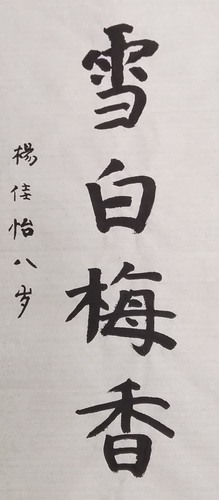 雪白梅香
楊佳怡八岁